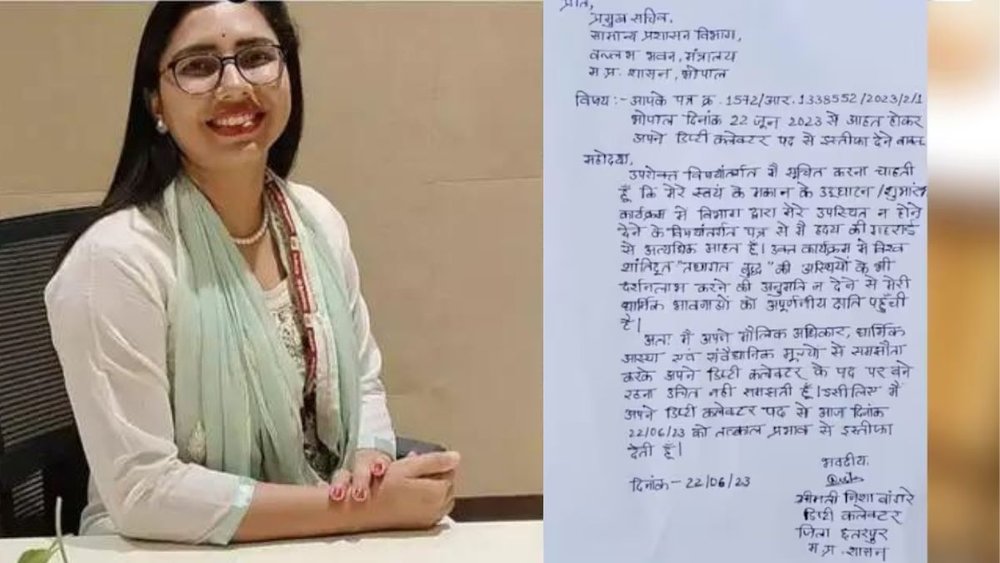 प्रति,
प्रमुख सचिव,
सामान्य प्रशासन विभाग,
वल्लभ भवन, मंत्रालय
म.प्र. शासन, भोपाल
विषय:- आपके पत्र क्र. 1572/आर. 1338552/2023/2/1
भोपाल दिनांक 22 जून 2023 से आहत होकर
अपने डिप्टी कलेक्टर पद से इस्तीफा देने बाबत्
महोदया,
उपरोक्त विषयांतर्गत मैं सूचित करना चाहती
हूँ कि मेरे स्वयं के मकान के उद्घाटन/शुभारंभ
कार्यक्रम में विभाग द्वारा मेरे उपस्थित न होने
देने के विषयांतर्गत पत्र से मैं हृदय की गहराई
से अत्यधिक आहत हूँ। उक्त कार्यक्रम में विश्व
शांतिदूत "तथागत बुद्ध" की अस्थियों के भी
दर्शनलाभ करने की अनुमति न देने से मेरी
धार्मिक भावनाओं को अपूर्णनीय क्षति पहुँची
है।
अतः मैं अपने मौलिक अधिकार, धार्मिक
आस्था एवं संवैधानिक मूल्यों से समझौता
करके अपने डिप्टी कलेक्टर के पद पर बने
रहना उचित नहीं समझती हूँ। इसीलिए मैं
अपने डिप्टी कलेक्टर पद से आज दिनांक
22/06/23 को तत्काल प्रभाव से इस्तीफा
देती हूँ।
भवदीय.
दिनांक - 22/06/23
श्रीमती निशा बांगरे
डिप्टी कलेक्टर
जिला छतरपुर
म.प्र. शासन